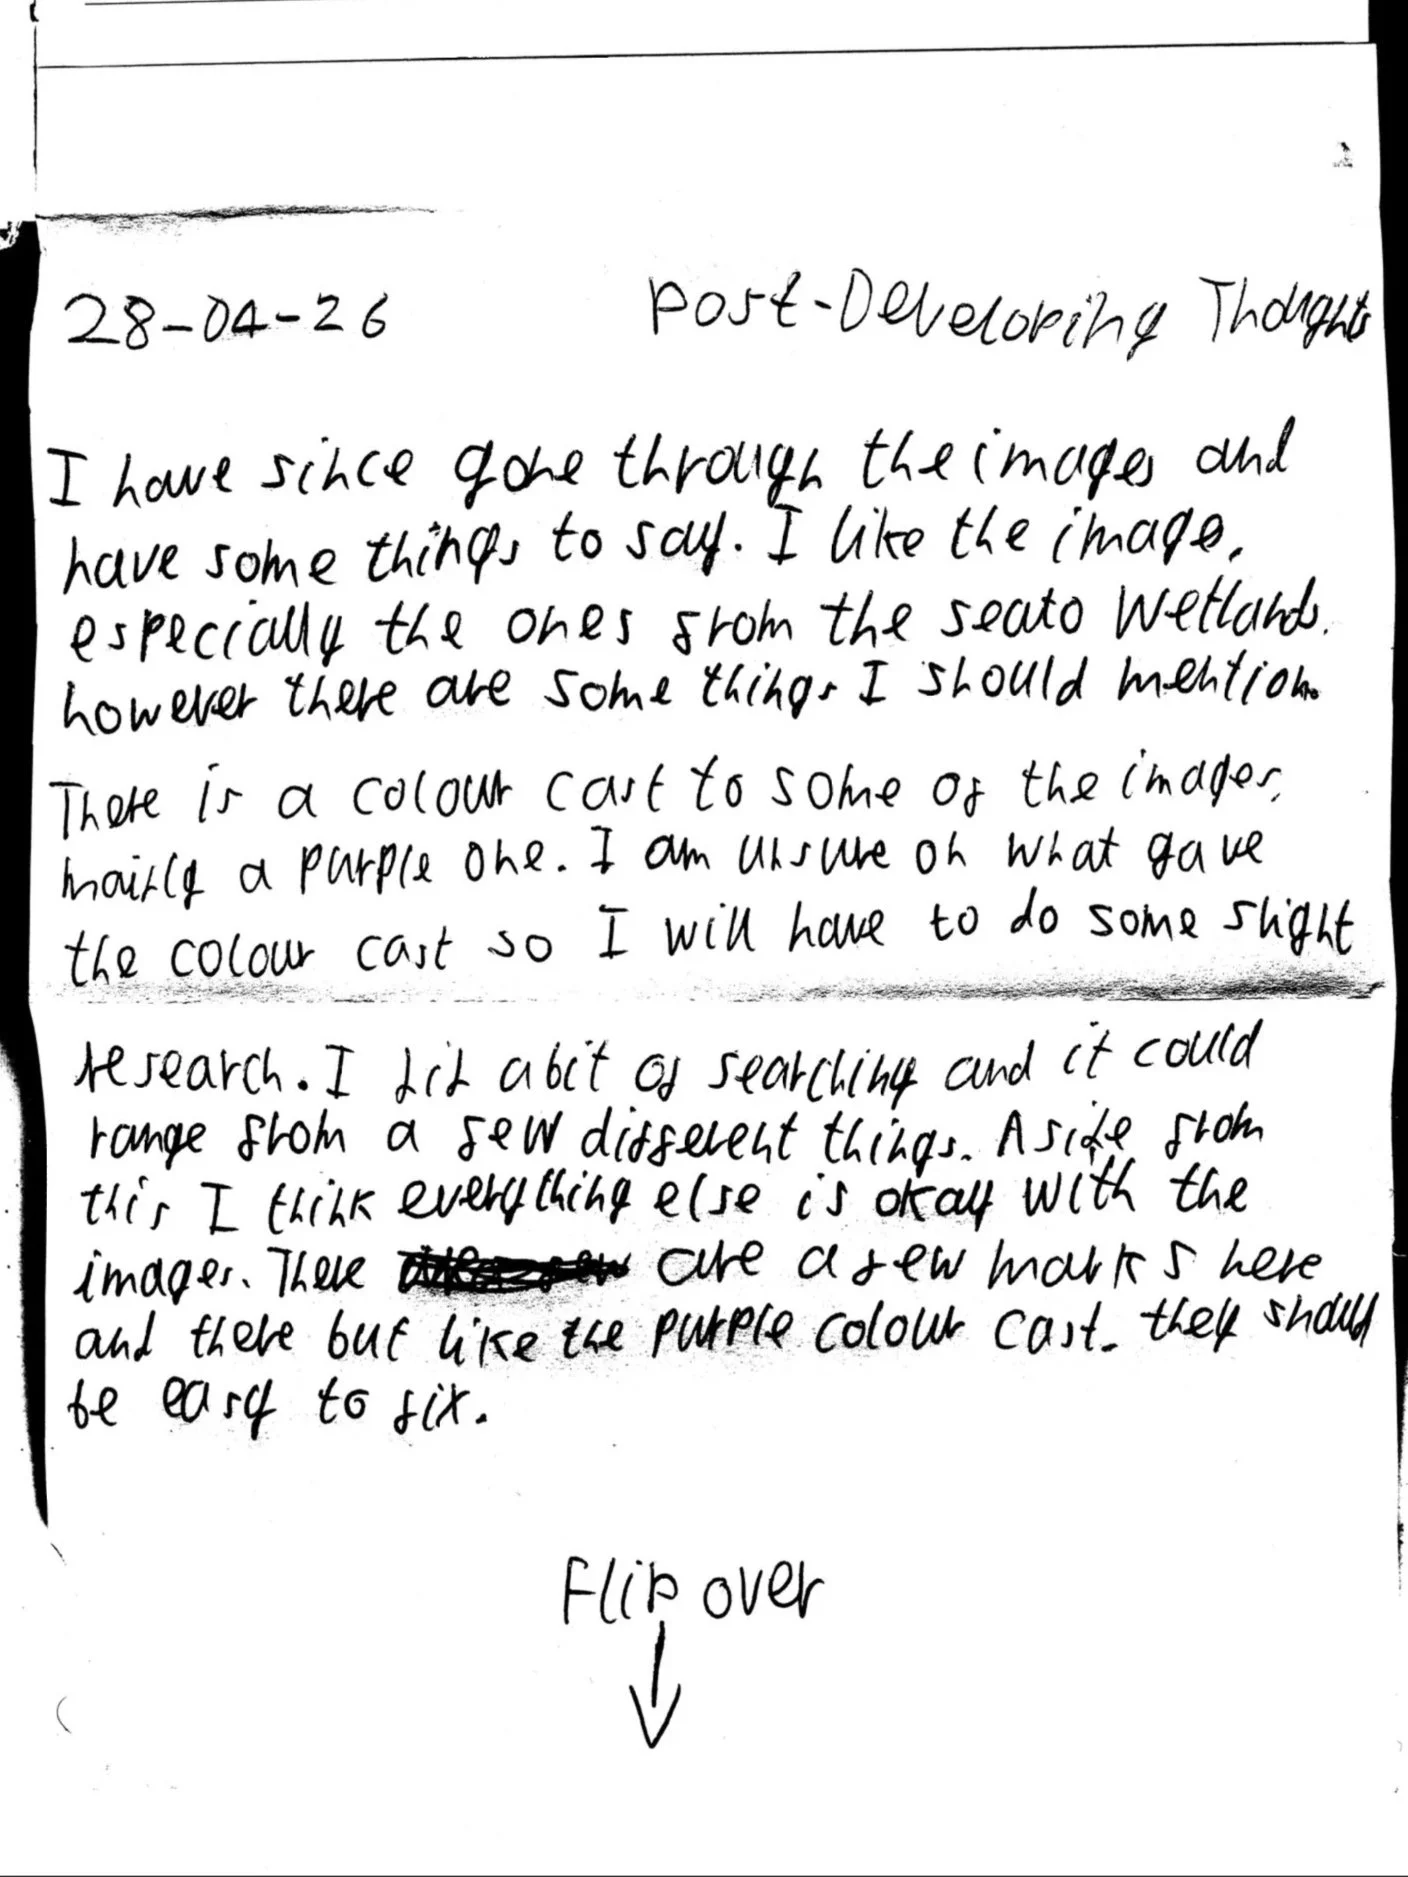 28-04-26 Post-Developing Thoughts
I have since gone through the images and
have some things to say. I like the image,
especially the ones from the seato wetlands.
however there are some things I should mention.
There is a colour cast to some of the images,
mainly a purple one. I am unsure on what gave
the colour cast so I will have to do some slight
research. I did a bit of searching and it could
range from a few different things. Aside from
this I think everything else is okay with the
images. There are a few marks here
and there but like the purple colour cast. they should
be easy to fix.
Flip over